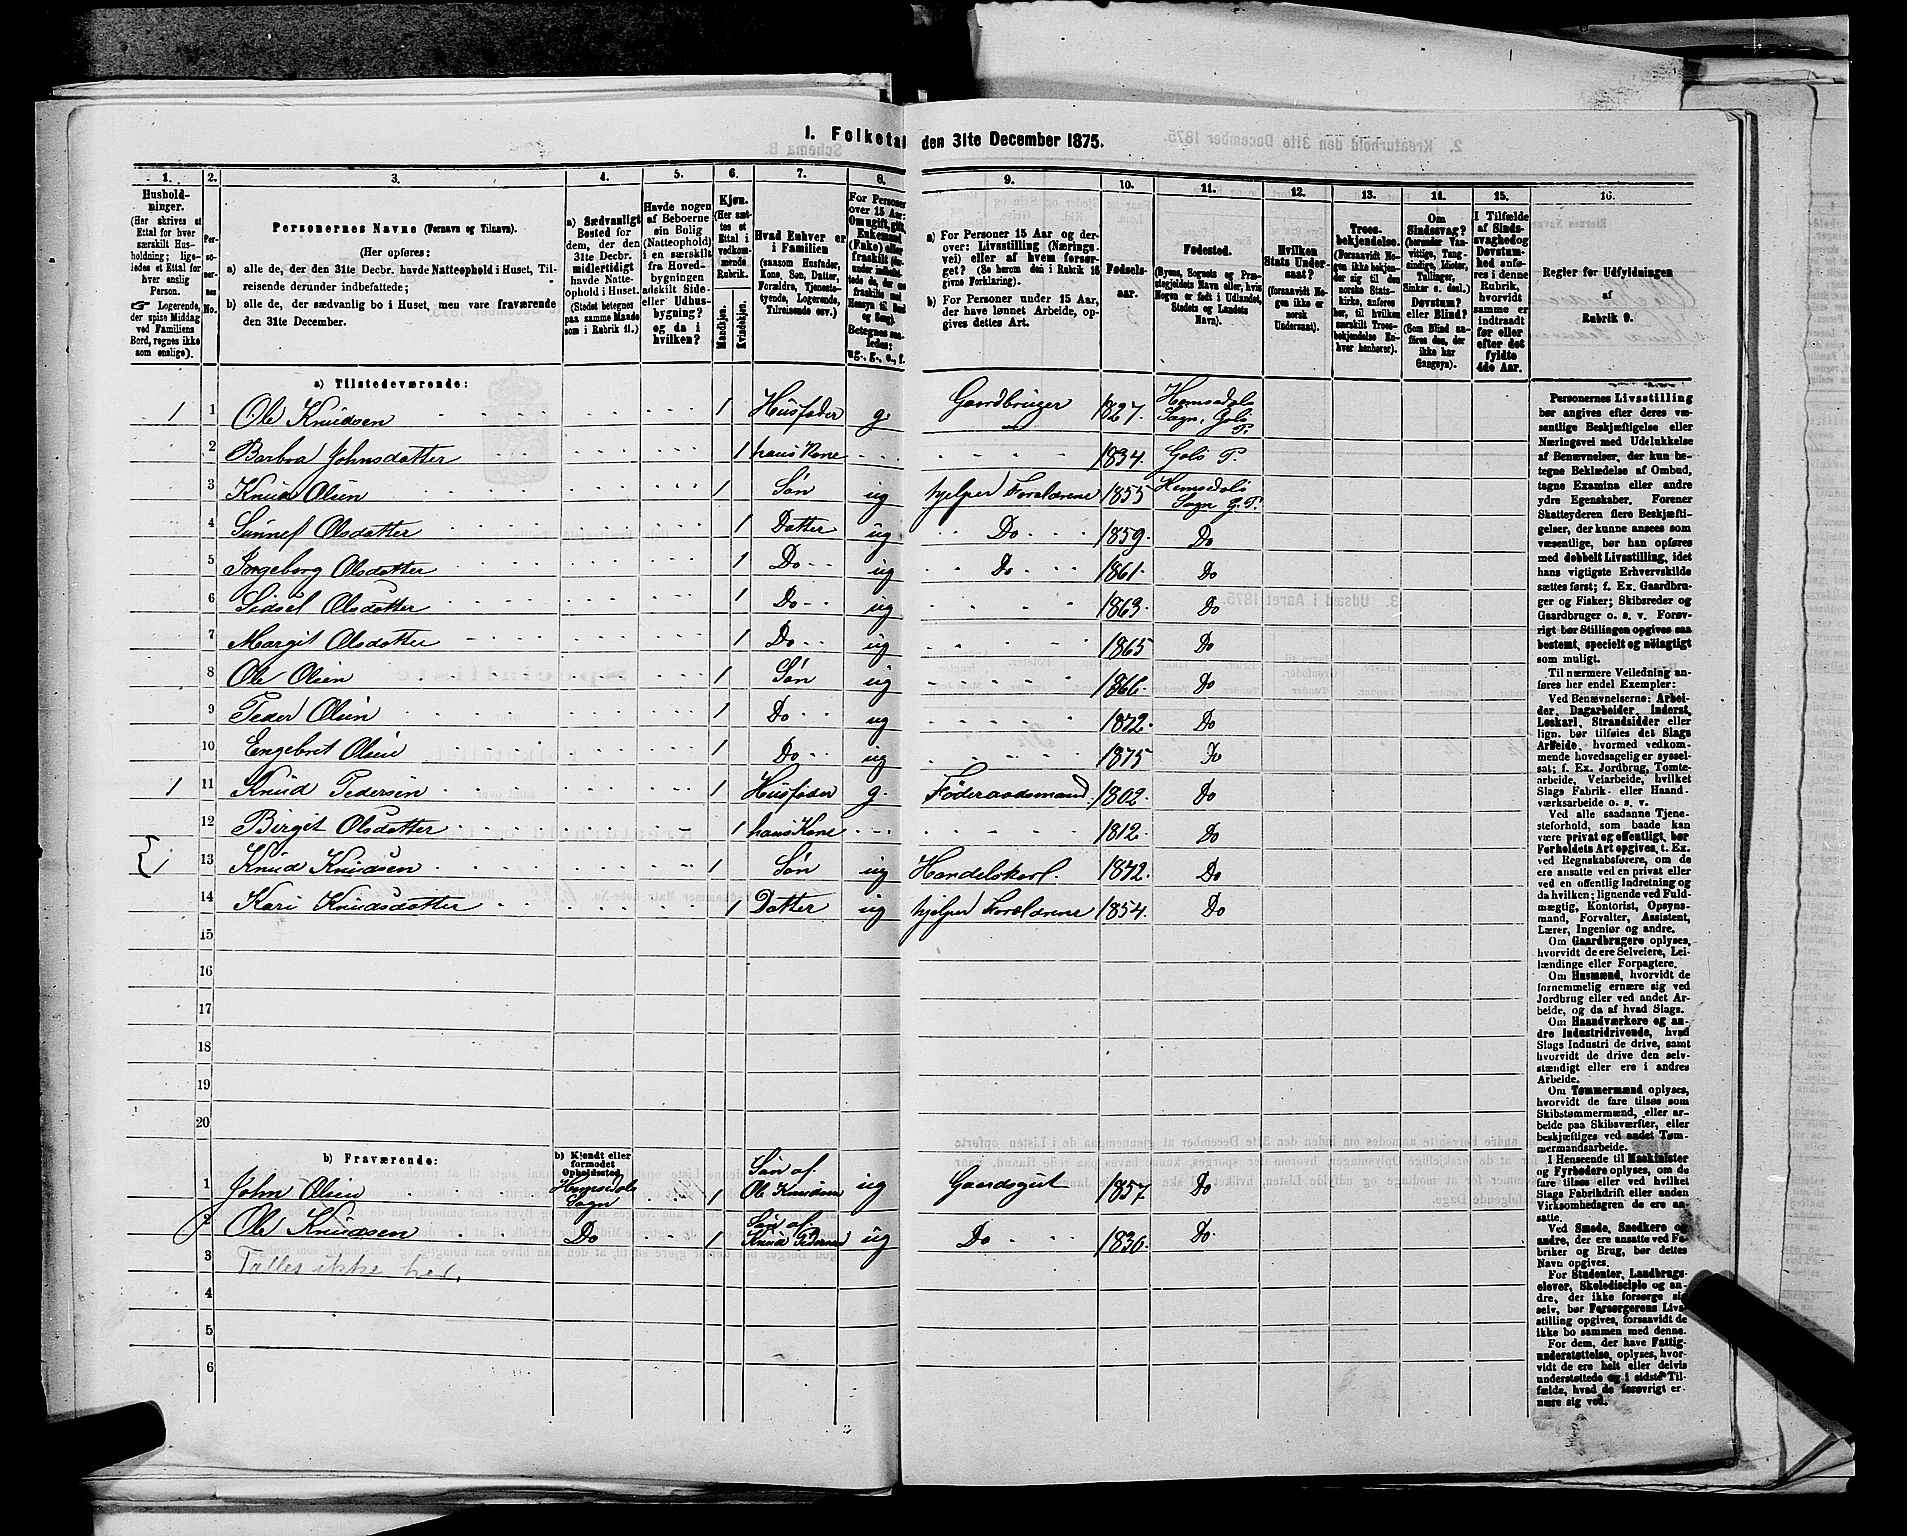 1. Folketal den 31te December 1875.
1. 2. 3. 4. 5. 6. 7. 8. 9. 10. 11. 12. 13. 14. 15. 16.
Husholdninger.
(Her skrives et Ettal for hver særskilt Husholdning; ligeledes et Ettal for hver enslig Person.
☞ Logerende, der spise Middag ved Familiens Bord, regnes ikke som enslige).
Personernes No.
Personernes Navne (Fornavn og Tilnavn).
(Her opføres:
a) alle de, der den 31te Decbr. havde Natteophold i Huset, Tilreisende derunder indbefattede;
b) alle de, der sædvanlig bo i Huset, men vare fraværende den 31te December.
a) Sædvanligt Bosted for dem, der den 31te Decbr. midlertidigt havde Natteophold i Huset. (Stedet betegnes paa samme Maade som i Rubrik 11.)
Havde nogen af Beboerne sin Bolig (Natteophold) i en særskilt fra Hovedbygningen adskilt Side- eller Udhusbygning? og da i hvilken?
Kjøn. (Her sættes et Ettal i vedkommende Rubrik.
Mandkjøn. Kvindekjøn.
Hvad Enhver er i Familien
(saasom Husfader, Kone, Søn, Datter, Forældre, Tjenestetyende, Logerende, Tilreisende osv.)
For Personer over 15 Aar: Omugift, gift, Enkemand (Enke) eller fraskilt
Betegnes saaledes: ug., g., e., f.
a) For Personer 15 Aar og derover: Livsstilling (Næringsvei) eller af hvem forsørget? (Se herom den i Rubrik 16 givne Forklaring).
b) For Personer under 15 Aar, der have lønnet Arbeide, opgives dettes Art.
Fødselsaar.
Fødested.
(Byens, Sognets og Præstegjeldets Navn eller, hvis Nogen er født i Udlandet, Stedets og Landets Navn).
Hvilken Stats Undersaat?
(forsaavidt Nogen ikke er norsk Undersaat).
Troesbekjendelse.
(Forsaavidt Nogen ikke bekjender sig til den norske Statskirke, anføres her, til hvilken særskilt Troesbekjendelse Enhver henhører).
Om Sindssvag? (herunder Vanvittige, Tungsindige, Idioter, Tullinger, Sinker o. desl.) Døvstum? eller Blind? (Som Blind anføres den, der ikke har Gangsyn).
I Tilfælde af Sindssvaghed og Døvstumhed anføres i denne Rubrik, hvorvidt samme er indtraadt før eller efter det fyldte 4de Aar.
Regler for Udfyldningen af Rubrik 9.
a) Tilstedeværende:
1 1 Ole Knudsen 1 Husfader g Gaardbruger 1827. Hemsedals Sogn, Gols P.
2 Barbra Johnsdatter 1 hans Kone 1834. Gols P.
3 Knud Olsen 1 Søn ug hjelper Forældrene 1855 Hemsedals Sogn G. P.
4 Sünnef Olsdatter 1 Datter ug Do 1859. Do
5 Ingeborg Olsdatter 1 Do ug Do 1861. Do
6 Sidsel Olsdatter 1 Do ug 1863. Do
7 Margit Olsdatter 1 Do ug 1865 Do
8 Ole Olsen 1 Søn ug 1866. Do
9 Peder Olsen 1 Do ug 1872. Do
10 Engebret Olsen 1 Do ug 1875 Do
1 11 Knud Pedersen 1 Husfader g. Föderaadsmand. 1802. Do
12 Birgit Olsdatter 1 hans Kone 1812. Do
1 13 Knud Knudsen 1 Søn ug Handelskarl. 1842. Do
14 Kari Knudsdatter 1 Datter ug hjelper Forældrene 1854. Do
15
16
17
18
19
20
b) Fraværende:
b) Kjendt eller formodet Opholdssted.
1 John Olsen Hemsedals Sogn 1 Søn af Ole Knudsen ug Gaardsgut 1857. Do
2 Ole Knudsen Do 1 Søn af Knud Pedersen ug Do 1836. Do
3 Tælles ikke her.
4
5
6
Personernes Livsstilling
bør angives efter deres væsentlige Beskjæftigelse eller
Næringsvei med Udelukkelse
af Benævnelser, der kun betegne Beklædelse af Ombud,
tagne Examina eller andre
ydre Egenskaber. Forener
Skatteyderen flere Beskjæftigelser, der kunne ansees som
væsentlige, bør han opføres
med dobbelt Livsstilling, idet
hans vigtigste Erhvervskilde
sættes først; f. Ex. Gaardbruger og Fisker; Skibsreder og
Gaardbruger o. s. v. Forøvrigt bør Stillingen opgives saa
bestemt, specielt og nøiagtigt
som muligt.
Til nærmere Veiledning anføres her endel Exempler:
Ved Benævnelserne: Arbeider, Dagarbeider, Inderst,
Løskarl, Strandsidder eller
lign. bør tilføies det Slags
Arbeide, hvormed vedkommende hovedsagelig er sysselsat; f. Ex. Jordbrug, Tomtearbeide, Veiarbeide, hvilket
Slags Fabrik- eller Haandværksarbeide o. s. v.
Ved alle saadanne Tjenesteforhold, som baade kan
være privat og offentligt, bør
Forholdets Art opgives, t. Ex.
ved Regnskabsførere, om de
ere ansatte ved en privat eller
ved en offentlig Indretning og
da hvilken; lignende ved Fuldmægtig, Kontorist, Opsynsmand, Forvalter, Assistent,
Lærer, Ingeniør og andre.
Om Gaardbrugere oplyses,
hvorvidt de ere Selveiere, Leilændinge eller Forpagtere.
Om Husmænd, hvorvidt de
fornemmelig ernære sig ved
Jordbrug eller ved andet Arbeide, og da af hvad Slags.
Om Haandværkere og andre Industridrivende, hvad
Slags Industri de drive, samt
hvorvidt de drive den selvstændigt eller ere i andres
Arbeide.
Om Tømmermænd oplyses,
hvorvidt de fare tilsøs som
Skibstømmermænd, eller arbeide paa Skibsværfter, eller
beskjæftiges ved andet Tømmermandsarbeide.
I Henseende til Maskinister
og Fyrbødere oplyses, om de
fare tilsøs eller ved hvilket
Slags Fabrikdrift eller anden
Virksomhedsgren de ere ansatte.
Ved Smede, Snedkere og
andre, der ere ansatte ved Fabriker og Brug, bør dettes
Navn opgives.
For Studenter, Landbrugselever, Skoledisciple og andre, der ikke forsørge sig
selv, bør Forsørgerens Livsstilling opgives, forsaavidt de
ikke bo sammen med denne.
For dem, der have Fattigunderstøttelse, oplyses, hvorvidt de ere helt eller delvis
understøttede og i sidste Tilfælde, hvad de forøvrigt ernære sig ved.